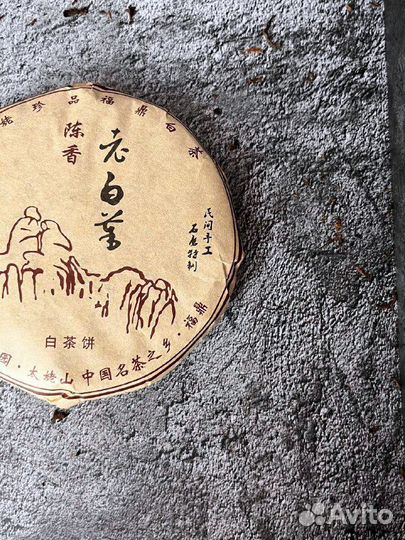 珍品福鼎白茶
陈香
老白茶
民间手工
石磨特制
白茶饼
园·太姥山 中国名茶之乡·福鼎
Avito